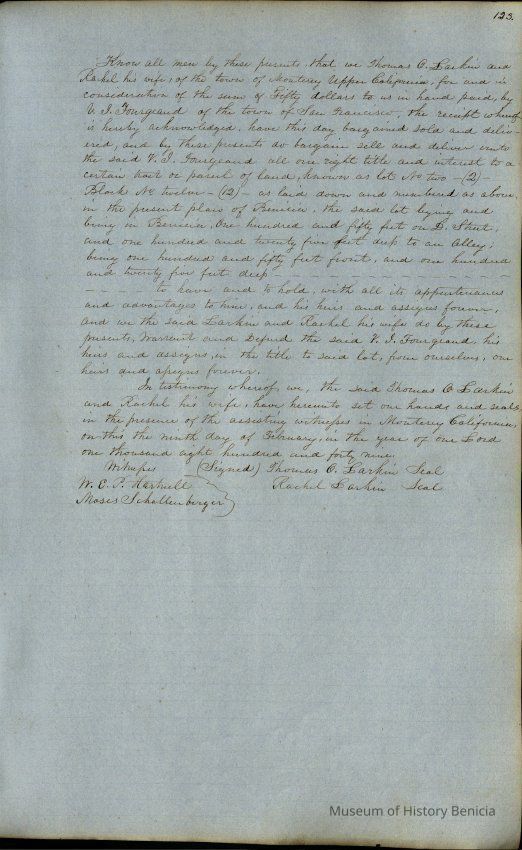 123.
Know all men by these presents, that we Thomas O. Larkin and
Rachel his wife, of the town of Monterey Upper California, for and in
consideration of the sum of Fifty dollars to us in hand paid, by
V. J. Fourgeaud of the town of San Francisco, the receipt whereof
is hereby acknowledged, have this day bargained sold and deliv-
ered, and by these presents do bargain sell and deliver unto
the said V. J. Fourgeaud all our right title and interest to a
certain tract or parcel of land, known as lot No two -(2)-
Block No twelve -(12)- as laid down and numbered as above,
in the present plan of Benicia, the said lot lying and
being in Benicia, One hundred and fifty feet on D. Street,
and one hundred and twenty five feet deep to an Alley,
being one hundred and fifty feet front, and one hundred
and twenty five feet deep - - - - - - - - - - - -
- - - - - to have and to hold, with all its appurtenances
and advantages to him, and his heirs and assigns forever,
and we the said Larkin and Rachel his wife do by these
presents, Warrant and Defend the said V. J. Fourgeaud, his
heirs and assigns, in the title to said lot, from ourselves, our
heirs and assigns forever.
In testimony whereof, we, the said Thomas O Larkin
and Rachel his wife, have hereunto set our hands and seals,
in the presence of the assisting witnesses in Monterey California,
on this the ninth day of February, in the year of our Lord
one thousand eight hundred and forty nine.
Witness (Signed) Thomas O. Larkin Seal
W. E. P. Hartnell Rachel Larkin Seal
Moses Schallenberger
Museum of History Benicia